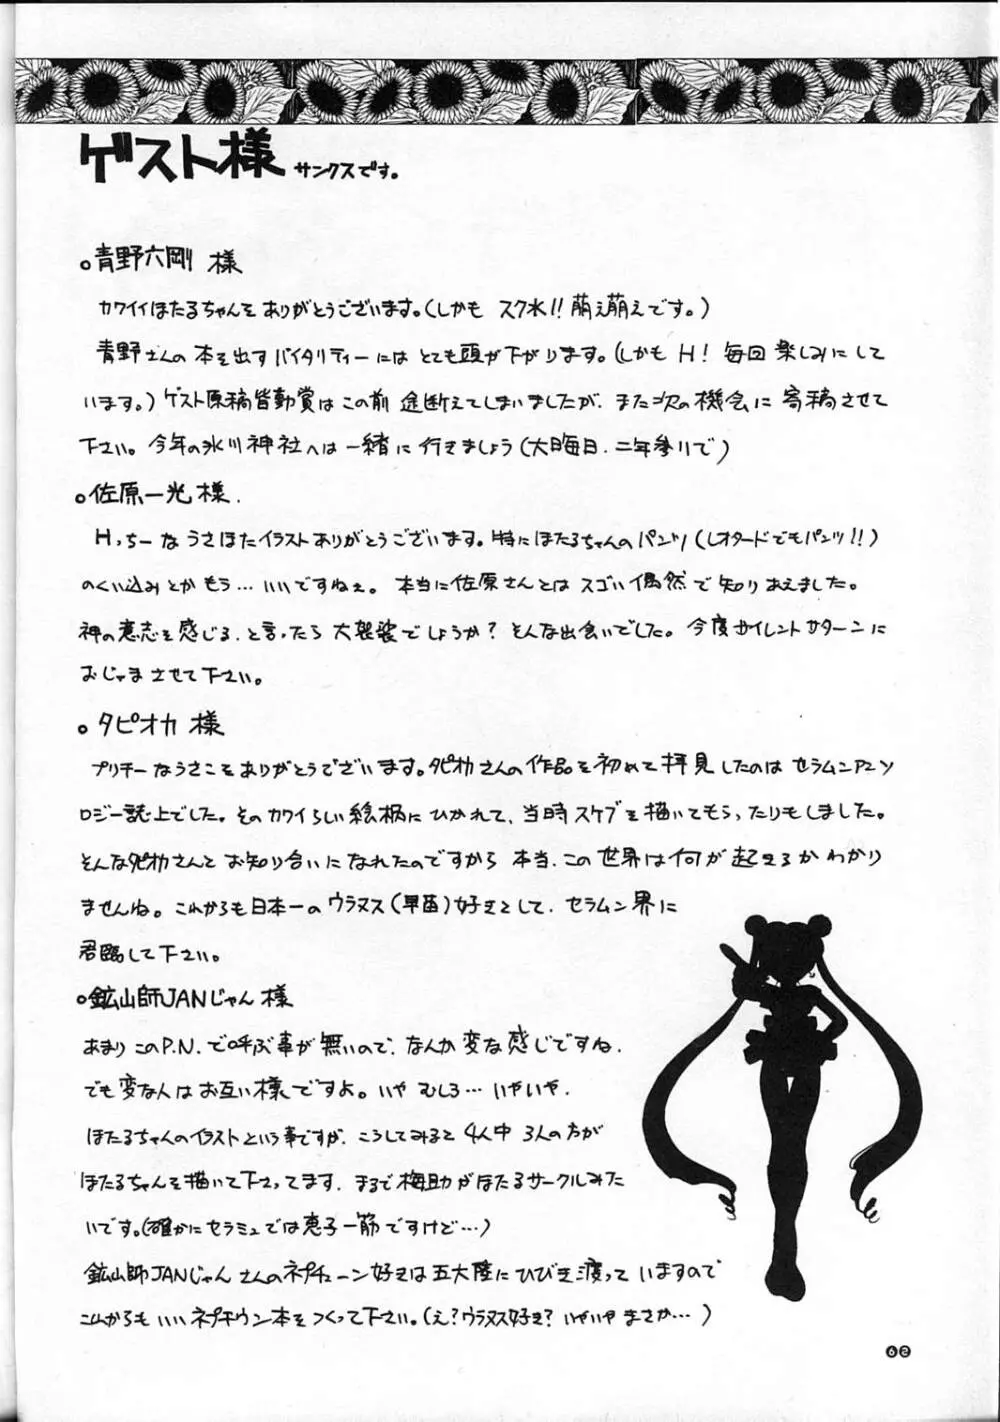 ゲスト様 サンクスです。
。青野六剛 様
カワイイほたるちゃんをありがとうございます。(しかも スク水!! 萌え萌えです。)
青野さんの本を出すバイタリティーにはとても頭が下がります。(しかもH! 毎回楽しみにして
います。)ゲスト原稿皆勤賞はこの前 途断えてしまいましたが、また次の機会に寄稿させて
下さい。今年の氷川神社へは一緒に行きましょう(大晦日.二年参りで)
。佐原一光様.
Hっちーな うさほたイラストありがとうございます。特にほたるちゃんのパンツ(レオタードでもパンツ!!)
のくい込みとかもう…いいですねぇ。本当に佐原さんとはスゴい偶然で知りあえました。
神の意志を感じる、と言ったら大袈裟でしょうか? そんな出会いでした。今度サイレントサターンに
おじゃまさせて下さい。
。タピオカ 様
プリチーなうさこをありがとうございます。タピオカさんの作品を初めて拝見したのはセラムンアン
ロジー誌上でした。そのカワイらしい絵柄にひかれて、当時スケブを描いてもらったりもしました。
そんなタピオカさんとお知り合いになれたのですから本当、この世界は何が起きるかわかり
ませんね。これからも日本一のウラヌス(早苗)好きとして、セラムン界に
君臨して下さい。
。鉱山師JANじゃん 様
あまりこのP.N.で呼ぶ事が無いので、なんか変な感じですね.
でも変な人はお互い様ですよ。いや むしろ…いやいや.
ほたるちゃんのイラストという事ですが、こうしてみると4人中3人の方が
ほたるちゃんを描いて下さってます. まるで梅助がほたるサークルみた
いです。(確かにセラミュでは恵子一筋ですけど…)
鉱山師JANじゃん さんのネプチューン好きは五大陸にひびき渡っていますので
これからもいいネプチウン本をつくって下さい。(え?ウラヌス好き? いやいや まさか…)
62